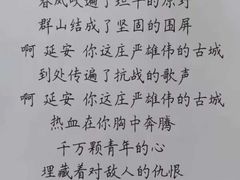 春风吹遍了坦平的原野
群山结成了坚固的围屏
啊 延安 你这庄严雄伟的古城
到处传遍了抗战的歌声
啊 延安 你这庄严雄伟的古城
热血在你胸中奔腾
千万颗青年的心
埋藏着对敌人的仇恨